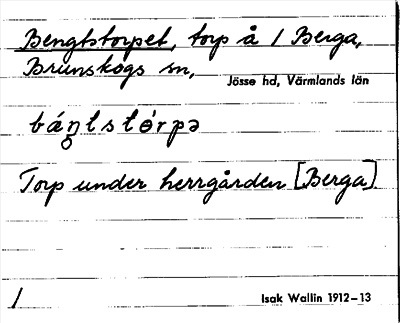 Bengtstorpet, torp å 1 Berga,
Brunskogs sn,
Jösse hd, Värmlands län
báŋ̥tstɵ́rpə
Torp under herrgården [Berga]
1
Isak Wallin 1912-13